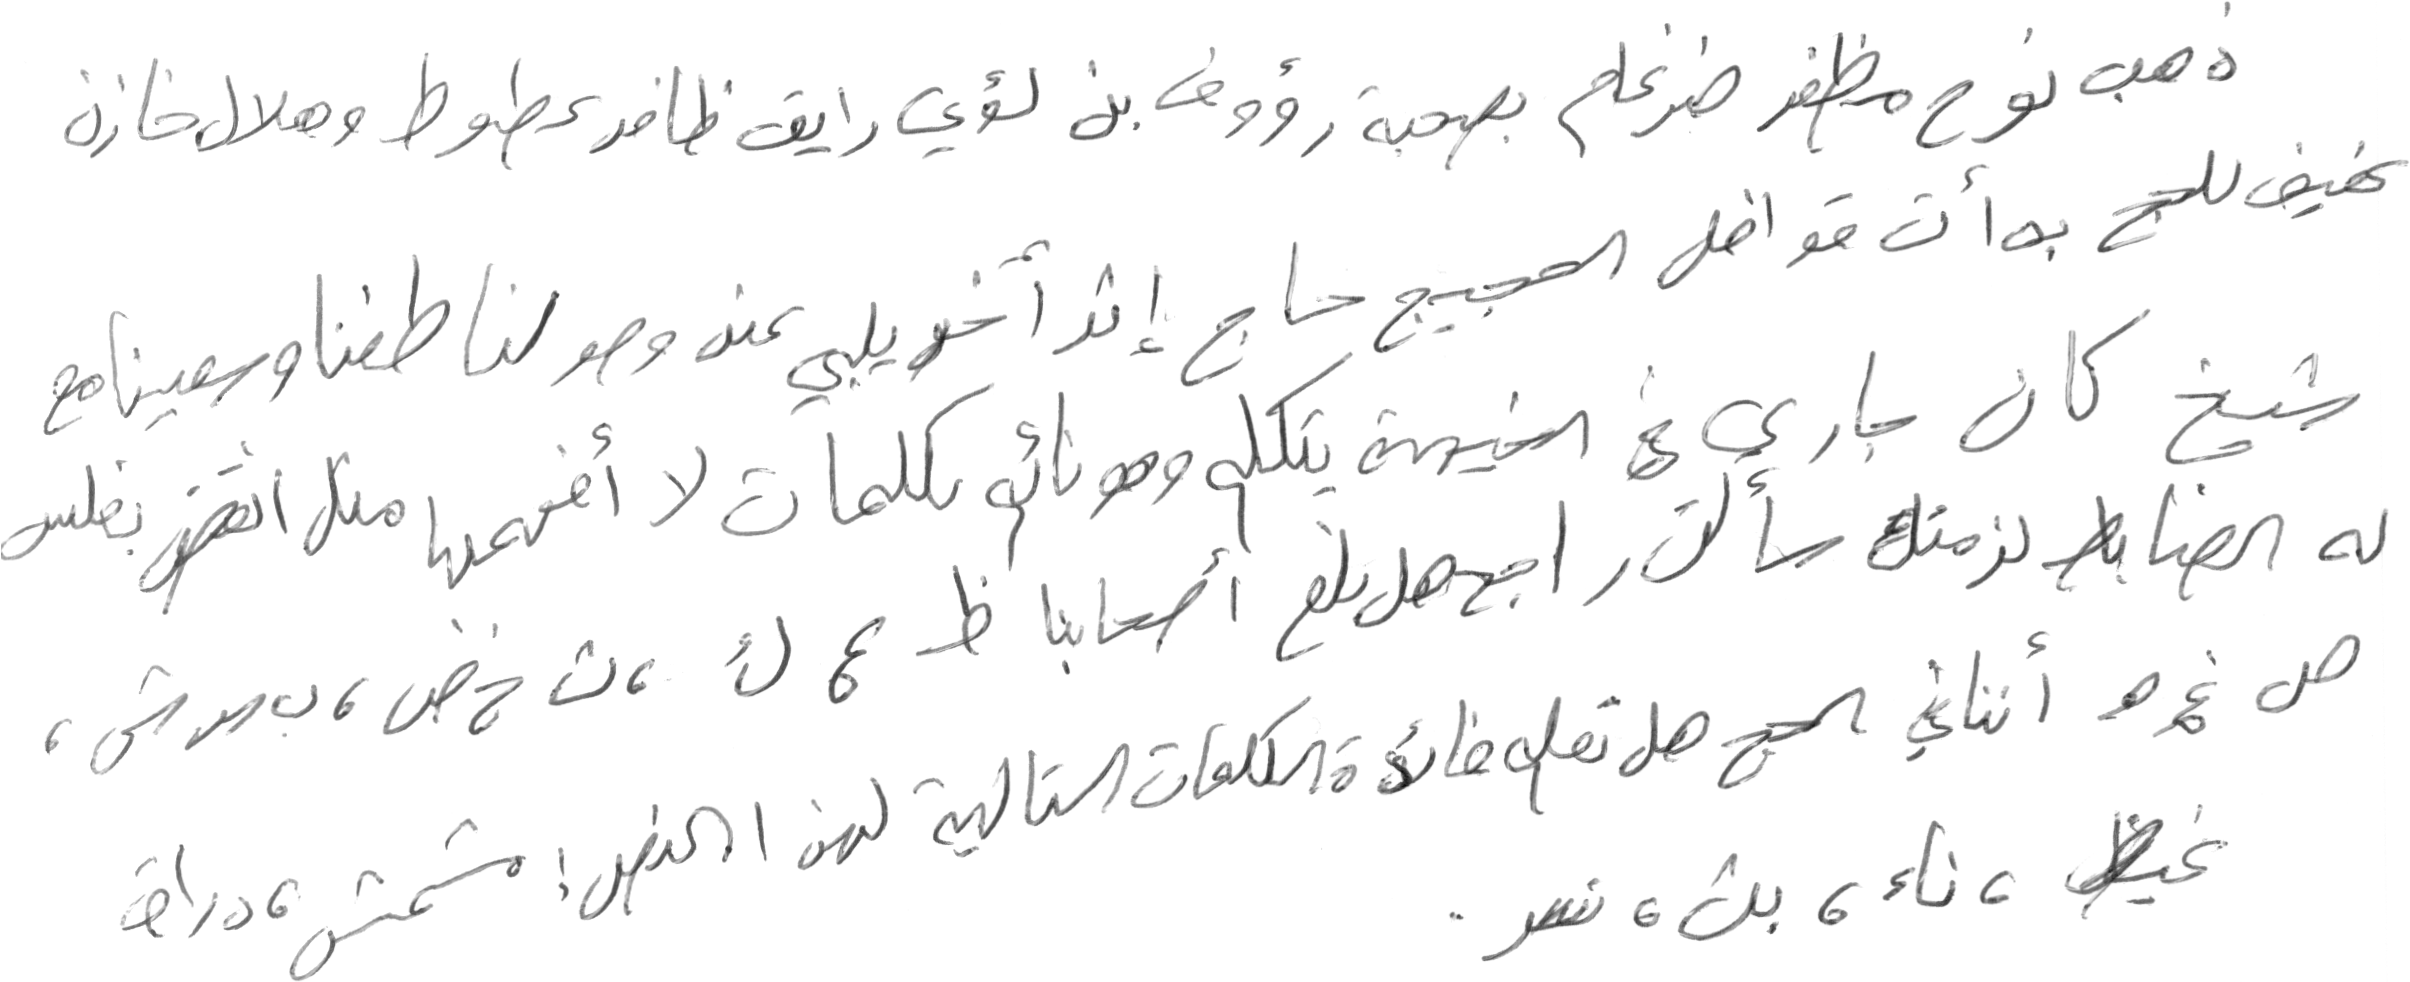 ذهب نوح مظفر ضرغام بصحبة رؤوف بن لؤي رايق ظافر عطوط وهلال خازن
عفيف للحج بدأت قوافل الحجيج حاج إثر آخر يلبي عند وصولنا طفنا وسعينا مع
شيخ كان جاري في الخيمة يتكلم وهو نائم بكلمات لا أفهمها مثل انقض بغلس
له الضابط لزمتك سألت راجح هل بلغ أصحابنا ظ ع لئ ، ث ج ض ، ب س ش ،
ص غ ه أثناء الحج هل تعلم فائدة الكلمات التالية لهذا النص : مشمش ، دراق
غيظ ، ناء ، بث ، نسر .